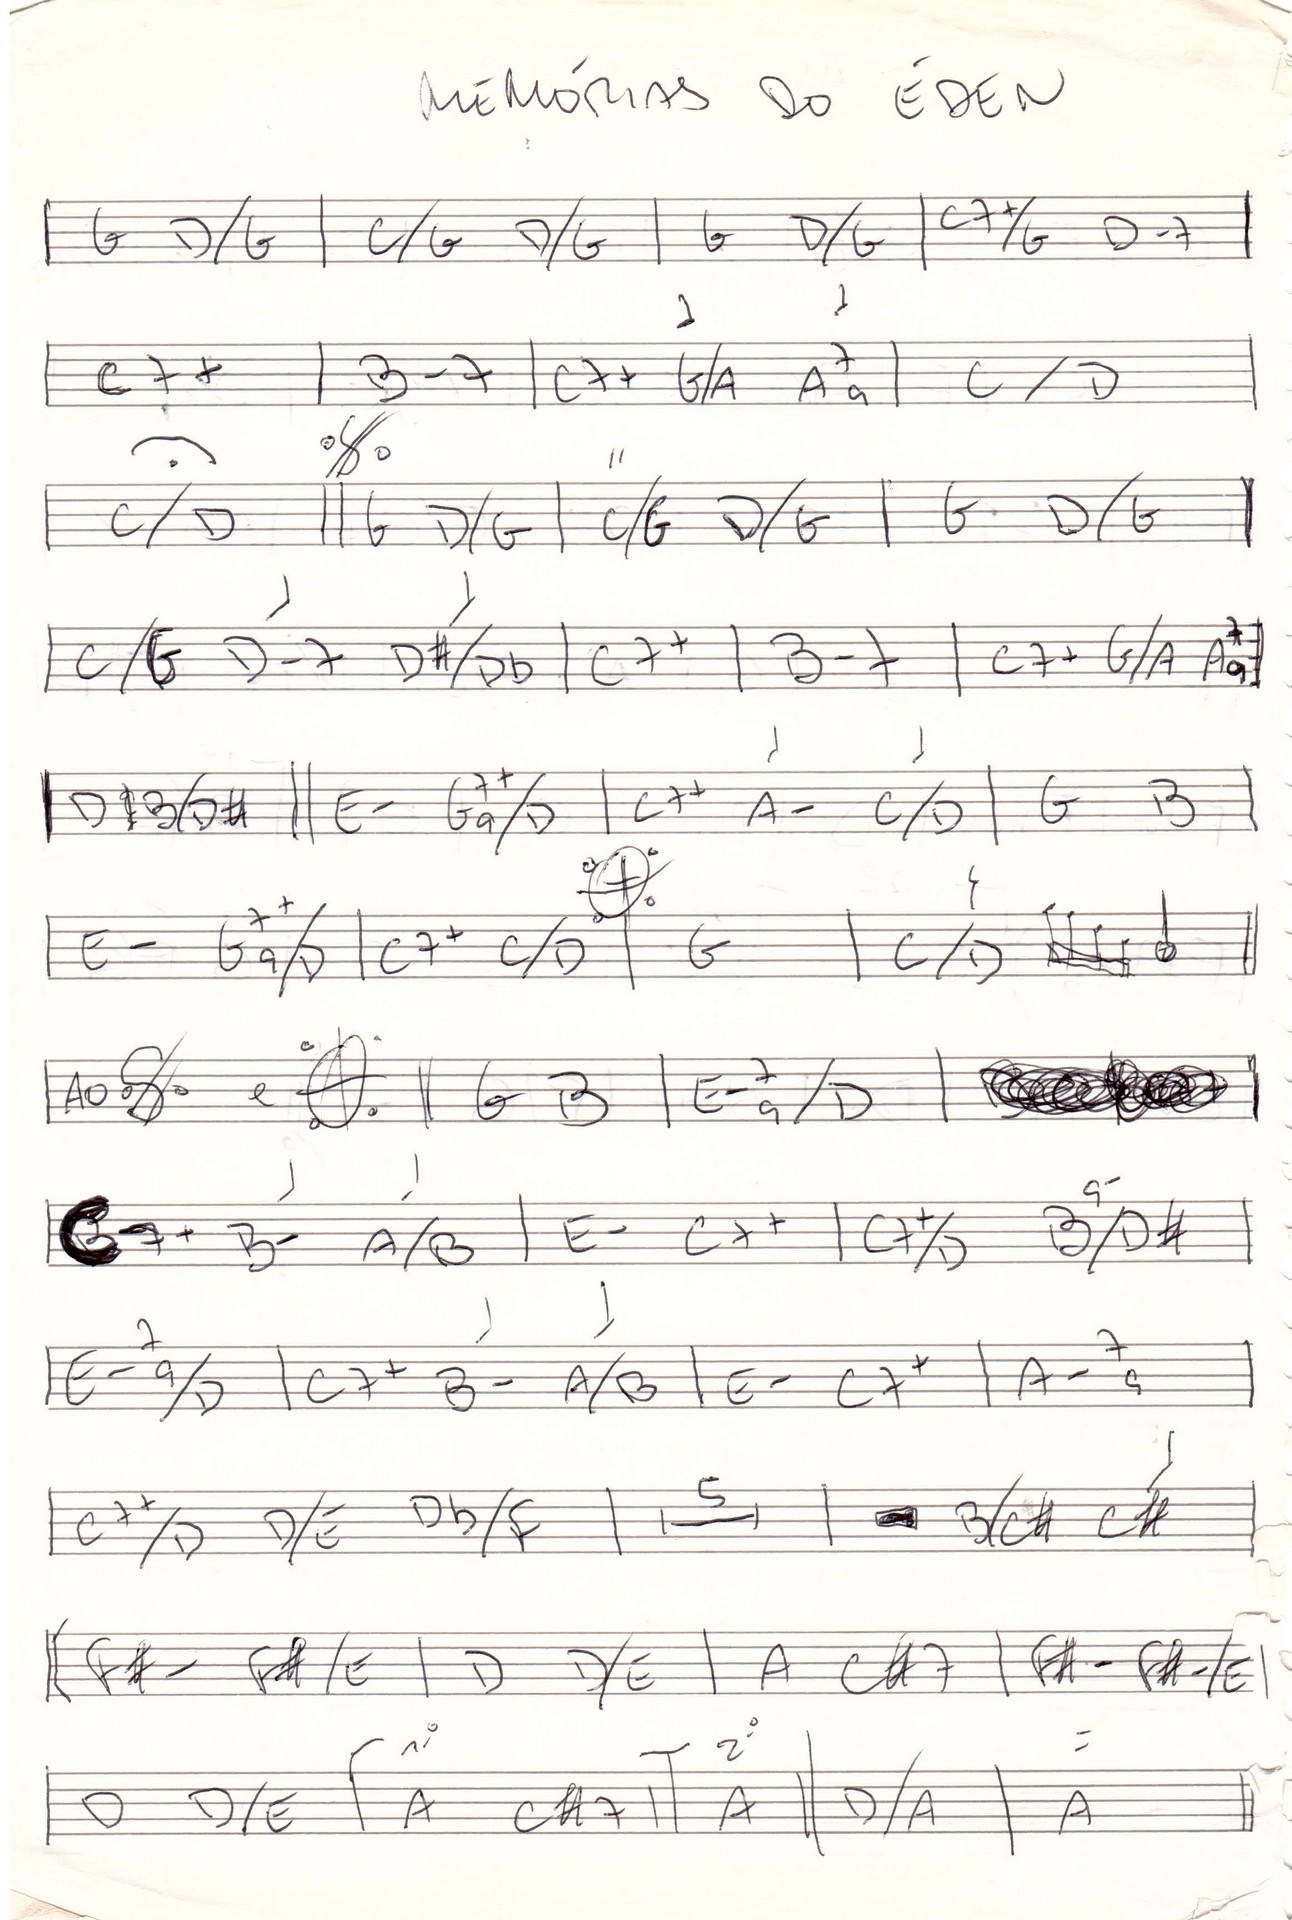 MEMÓRIAS DO ÉDEN
G D/G | C/G D/G | G D/G | C7+/G D-7
C7+ | B-7 | C7+ G/A A7 9 | C/D
C/D || G D/G | C/G D/G | G D/G
C/G D-7 D#/Db | C7+ | B-7 | C7+ G/A A7 9
D B/D# || E- G7+ 9/D | C7+ A- C/D | G B
E- G7+ 9/D | C7+ C/D | G | C/D
AO e || G B | E-7 9/D |
C7+ B- A/B | E- C7+ | C7+/D B9-/D#
E-7 9/D | C7+ B- A/B | E- C7+ | A-7 9
C7+/D D/E Db/F | 5 | B/C# C#
F#- F#/E | D D/E | A C#7 | F#- F#-/E
D D/E 1º A C#7 2º A || D/A | A